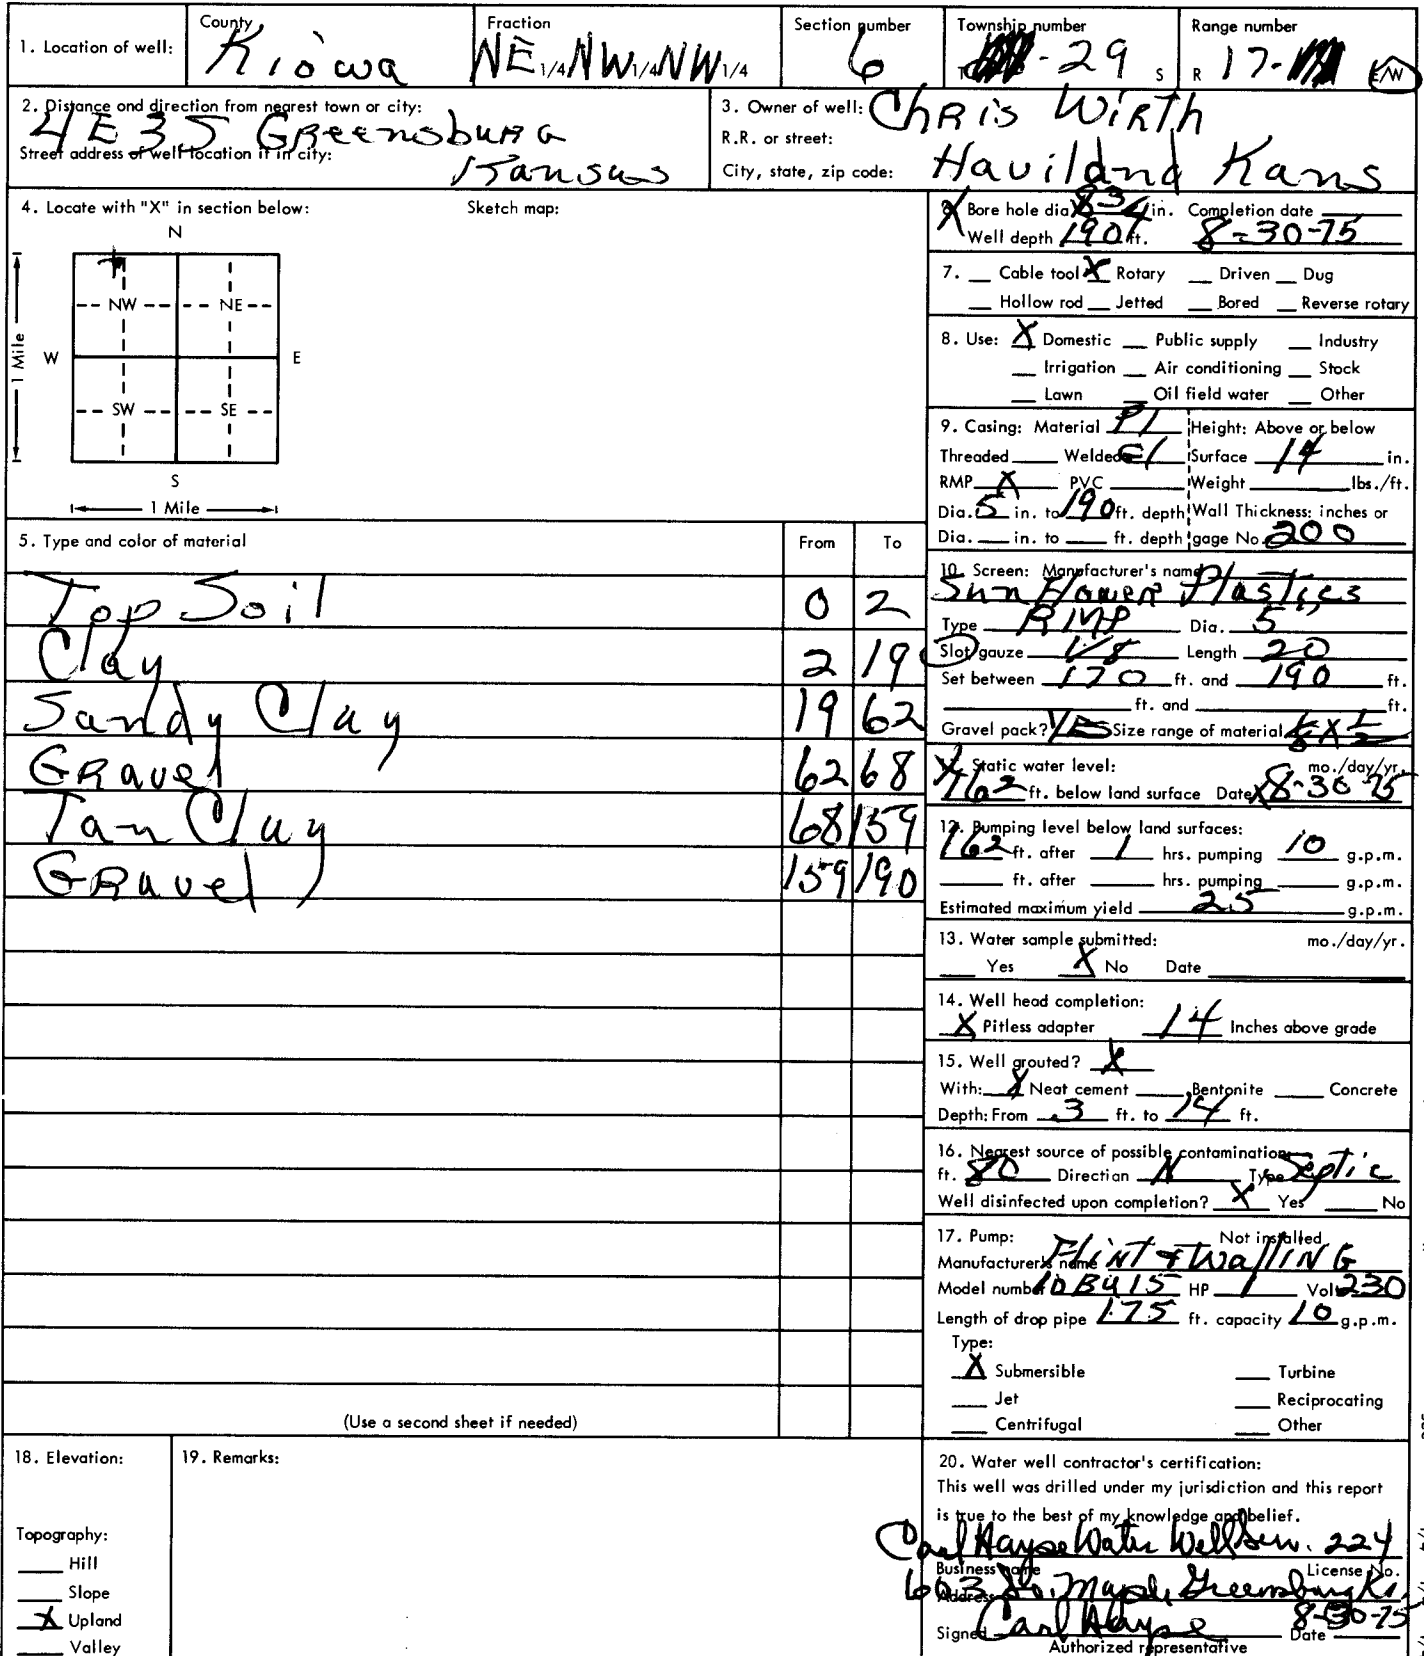 1. Location of well:
County
Kiowa
Fraction
NE 1/4 NW 1/4 NW 1/4
Section number
6
Township number
-29 S
Range number
R 17- E/W
2. Distance and direction from nearest town or city:
4E 3S Greensburg
Street address of well location if in city:
Kansas
3. Owner of well: Chris Wirth
R.R. or street:
City, state, zip code: Haviland Kans
4. Locate with "X" in section below:
Sketch map:
N
NW NE
W E
1 Mile
SW SE
S
1 Mile
5. Type and color of material From To
Top Soil 0 2
Clay 2 19
Sandy Clay 19 62
Gravel 62 68
Tan Clay 68 159
Gravel 159 190
(Use a second sheet if needed)
Bore hole dia. 8 3/4 in. Completion date
Well depth 190 ft. 8-30-75
7. Cable tool X Rotary Driven Dug
Hollow rod Jetted Bored Reverse rotary
8. Use: X Domestic Public supply Industry
Irrigation Air conditioning Stock
Lawn Oil field water Other
9. Casing: Material Pl Height: Above or below
Threaded Welded Gl Surface 14 in.
RMP X PVC Weight lbs./ft.
Dia. 5 in. to 190 ft. depth Wall Thickness: inches or
Dia. in. to ft. depth gage No. 200
10. Screen: Manufacturer's name
Sun Flower Plastics
Type RMP Dia. 5
Slot/gauze 1/8 Length 20
Set between 170 ft. and 190 ft.
ft. and ft.
Gravel pack? YES Size range of material 1/8 X 1/2
Static water level: mo./day/yr.
162 ft. below land surface Date 8-30-75
12. Pumping level below land surfaces:
162 ft. after 1 hrs. pumping 10 g.p.m.
ft. after hrs. pumping g.p.m.
Estimated maximum yield 25 g.p.m.
13. Water sample submitted: mo./day/yr.
Yes X No Date
14. Well head completion:
X Pitless adapter 14 Inches above grade
15. Well grouted? X
With: X Neat cement Bentonite Concrete
Depth: From 3 ft. to 14 ft.
16. Nearest source of possible contamination:
ft. 80 Direction N Type Septic
Well disinfected upon completion? X Yes No
17. Pump: Not installed
Manufacturer's name Flint & Walling
Model number 10B415 HP 1 Volts 230
Length of drop pipe 175 ft. capacity 10 g.p.m.
Type:
X Submersible Turbine
Jet Reciprocating
Centrifugal Other
18. Elevation:
Topography:
Hill
Slope
X Upland
Valley
19. Remarks:
20. Water well contractor's certification:
This well was drilled under my jurisdiction and this report
is true to the best of my knowledge and belief.
Carl Hayse Water Well Serv. 224
Business name License No.
603 So. Maple, Greensburg Ks.
Address
Signed Carl Hayse Date 8-30-75
Authorized representative